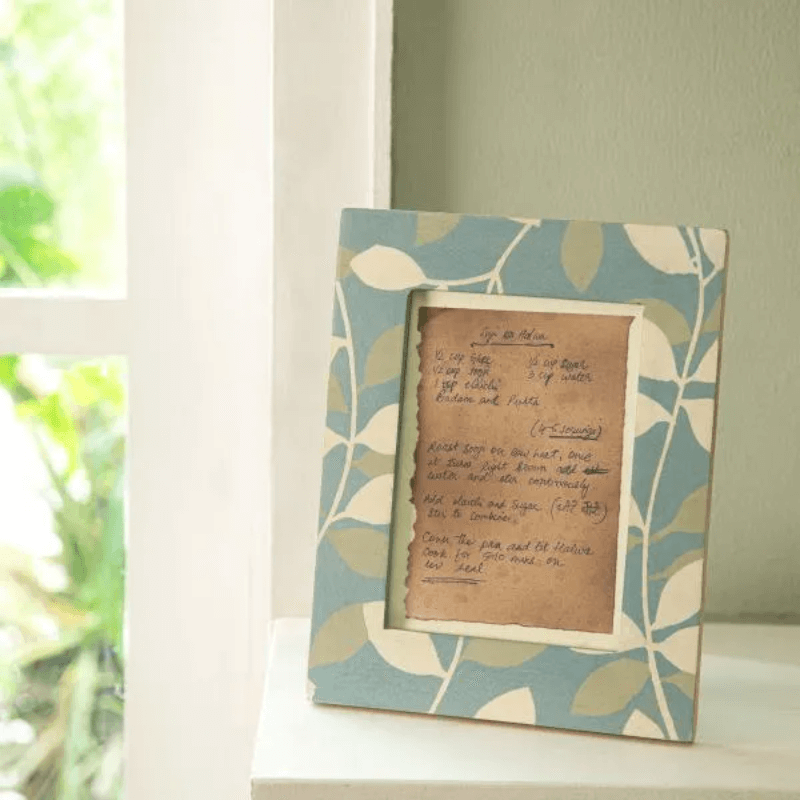 Suji ka Halwa
½ cup Ghee ½ cup Sugar
½ cup Suji 3 cup water
1 tsp elaichi
Badam and Pista
(4-5 servings)
Roast Suji on low heat, once
it turns light brown add
water and stir continuously
Add elaichi and Sugar
Stir to combine.
Cover the pan and let Halwa
Cook for 5-10 mins on
low heat.